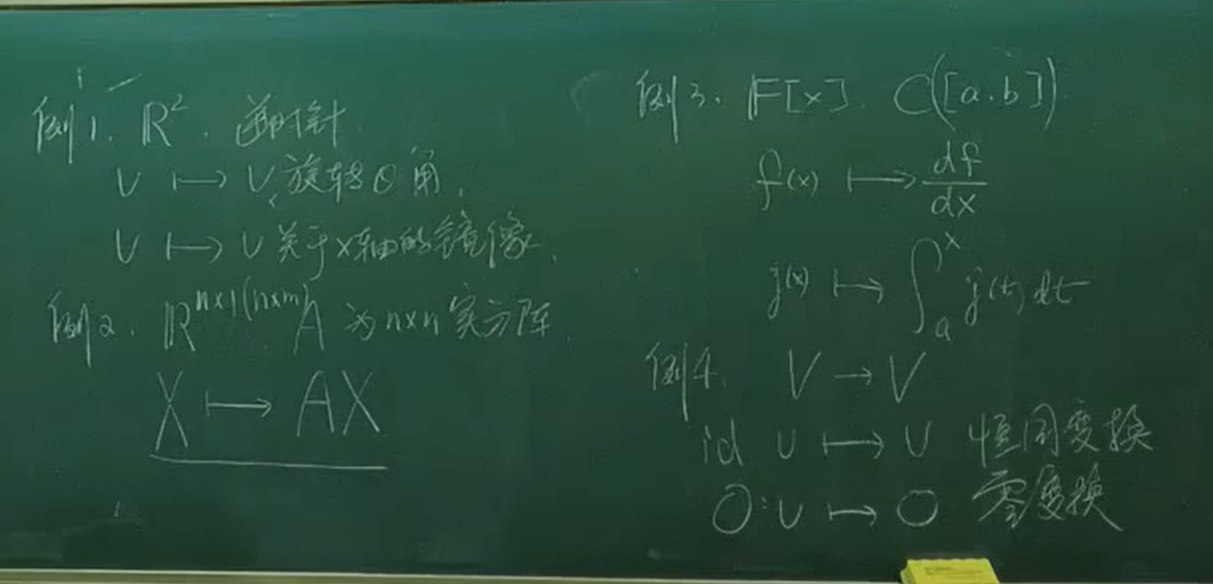 例1. R². 逆时针
v ↦ v 旋转θ角.
v ↦ v 关于x轴的镜像.
例2. R^{n×1(n×m)} A 为n×n实方阵.
X ↦ AX
例3. F[x]. C([a.b])
f(x) ↦ df/dx
f(x) ↦ ∫_a^x f(t)dt
例4. V → V
id v ↦ v 恒同变换
O: v ↦ 0 零变换